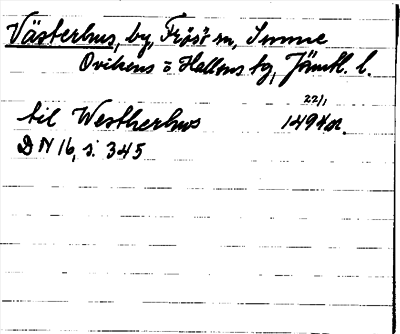 Västerhus, by, Frösö sn, Sunne
Ovikens o Hallens tg, Jämtl. l.
22/1
til Westherhws 1494 or.
DN 16, s. 345